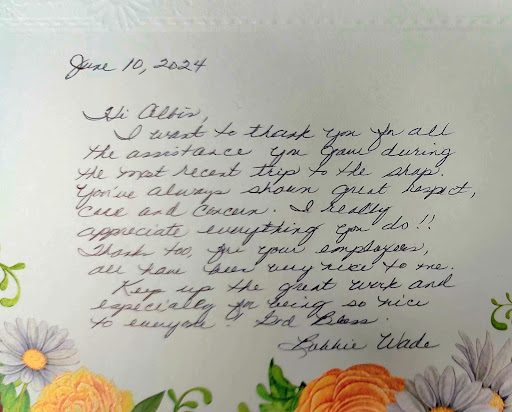 June 10, 2024
Hi Albis,
I want to thank you for all
the assistance you gave during
the most recent trip to the shop.
You've always shown great respect,
care and concern. I really
appreciate everything you do!!
Thanks too, for your employees,
all have been very nice to me.
Keep up the great work and
especially for being so nice
to everyone! God Bless.
Bobbie Wade